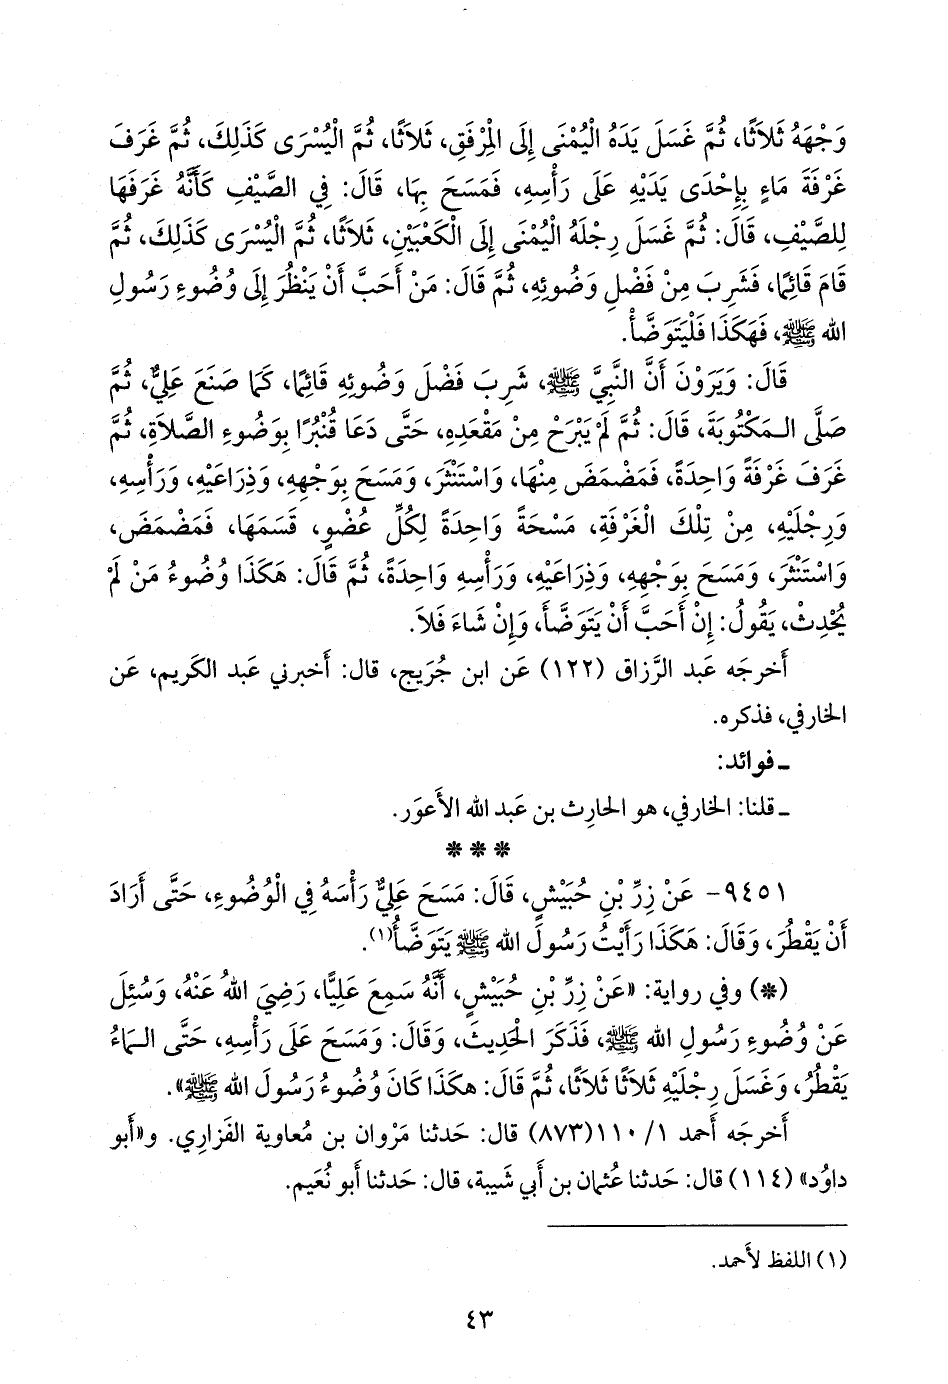 وَجْهَهُ ثَلاَثًا، ثُمَّ غَسَلَ يَدَهُ الْيُمْنَى إِلَى المِرْفَقِ، ثَلاَثًا، ثُمَّ الْيُسْرَى كَذَلِكَ، ثُمَّ غَرَفَ
غَرْفَةَ مَاءٍ بِإِحْدَى يَدَيْهِ عَلَى رَأْسِهِ، فَمَسَحَ بِهَا، قَالَ: فِي الصَّيْفِ كَأَنَّهُ غَرَفَهَا
لِلصَّيْفِ، قَالَ: ثُمَّ غَسَلَ رِجْلَهُ الْيُمْنَى إِلَى الْكَعْبَيْنِ، ثَلاَثًا، ثُمَّ الْيُسْرَى كَذَلِكَ، ثُمَّ
قَامَ قَائِمًا، فَشَرِبَ مِنْ فَضْلِ وَضُوئِهِ، ثُمَّ قَالَ: مَنْ أَحَبَّ أَنْ يَنْظُرَ إِلَى وُضُوءِ رَسُولِ
الله ﷺ، فَهَكَذَا فَلْيَتَوَضَّأْ.
قَالَ: وَيَرَوْنَ أَنَّ النَّبِيَّ ﷺ، شَرِبَ فَضْلَ وَضُوئِهِ قَائِمًا، كَمَا صَنَعَ عَلِيٌّ، ثُمَّ
صَلَّى الـمَكْتُوبَةَ، قَالَ: ثُمَّ لَمْ يَبْرَحْ مِنْ مَقْعَدِهِ، حَتَّى دَعَا قُنْبُرًا بِوَضُوءِ الصَّلاَةِ، ثُمَّ
غَرَفَ غَرْفَةً وَاحِدَةً، فَمَضْمَضَ مِنْهَا، وَاسْتَنْثَرَ، وَمَسَحَ بِوَجْهِهِ، وَذِرَاعَيْهِ، وَرَأْسِهِ،
وَرِجْلَيْهِ، مِنْ تِلْكَ الْغَرْفَةِ، مَسْحَةً وَاحِدَةً لِكُلِّ عُضْوٍ، قَسَمَهَا، فَمَضْمَضَ،
وَاسْتَنْثَرَ، وَمَسَحَ بِوَجْهِهِ، وَذِرَاعَيْهِ، وَرَأْسِهِ وَاحِدَةً، ثُمَّ قَالَ: هَكَذَا وُضُوءُ مَنْ لَمْ
يُحْدِثْ، يَقُولُ: إِنْ أَحَبَّ أَنْ يَتَوَضَّأَ، وَإِنْ شَاءَ فَلاَ.
أَخرجَه عَبد الرَّزاق (١٢٢) عَن ابن جُرَيج، قال: أَخبرني عَبد الكَريم، عَن
الخارفي، فذكره.
ـ فوائد:
ـ قلنا: الخارفي، هو الحارِث بن عَبد الله الأَعوَر.
* * *
٩٤٥١- عَنْ زِرِّ بْنِ حُبَيْشٍ، قَالَ: مَسَحَ عَلِيٌّ رَأْسَهُ فِي الْوُضُوءِ، حَتَّى أَرَادَ
أَنْ يَقْطُرَ، وَقَالَ: هَكَذَا رَأَيْتُ رَسُولَ الله ﷺ يَتَوَضَّأُ(١).
(*) وفي رواية: «عَنْ زِرِّ بْنِ حُبَيْشٍ، أَنَّهُ سَمِعَ عَلِيًّا، رَضِيَ اللهُ عَنْهُ، وَسُئِلَ
عَنْ وُضُوءِ رَسُولِ الله ﷺ، فَذَكَرَ الْحَدِيثَ، وَقَالَ: وَمَسَحَ عَلَى رَأْسِهِ، حَتَّى الـمَاءُ
يَقْطُرُ، وَغَسَلَ رِجْلَيْهِ ثَلاَثًا ثَلاَثًا، ثُمَّ قَالَ: هكَذَا كَانَ وُضُوءُ رَسُولَ الله ﷺ».
أَخرجَه أَحمد ١/ ١١٠(٨٧٣) قال: حَدثنا مَرْوان بن مُعاوية الفَزاري. و«أَبو
داوُد» (١١٤) قال: حَدثنا عُثمان بن أَبي شَيبة، قال: حَدثنا أَبو نُعَيم.
(١) اللفظ لأَحمد.
٤٣